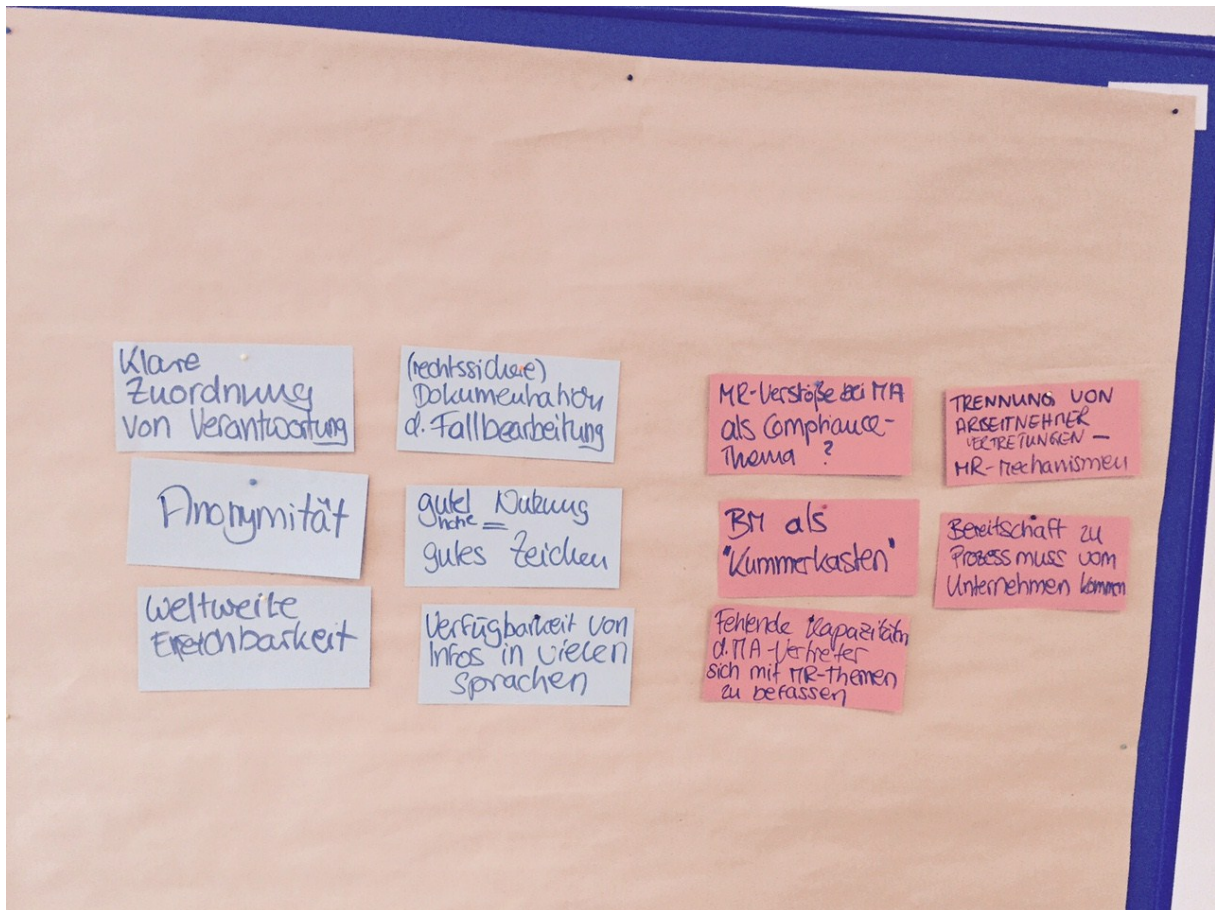 Klare
Zuordnung
von Verantwortung
Anonymität
weltweite
Erreichbarkeit
(rechtssichere)
Dokumentation
d. Fallbearbeitung
gute/ Nutzung
hohe =
gutes Zeichen
Verfügbarkeit von
Infos in vielen
Sprachen
MR-Verstöße bei MA
als Compliance-
Thema ?
BM als
"Kummerkasten"
Fehlende Kapazitäten
d. MA-Vertreter
sich mit MR-Themen
zu befassen
TRENNUNG VON
ARBEITNEHMER
VERTRETUNGEN –
MR-Mechanismen
Bereitschaft zu
Prozess muss vom
Unternehmen kommen